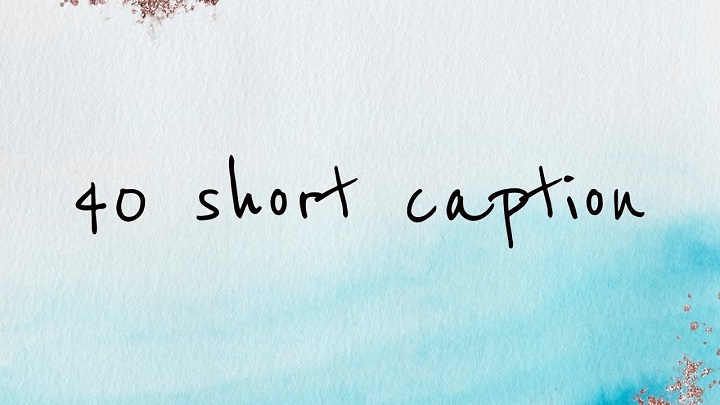 40 short caption